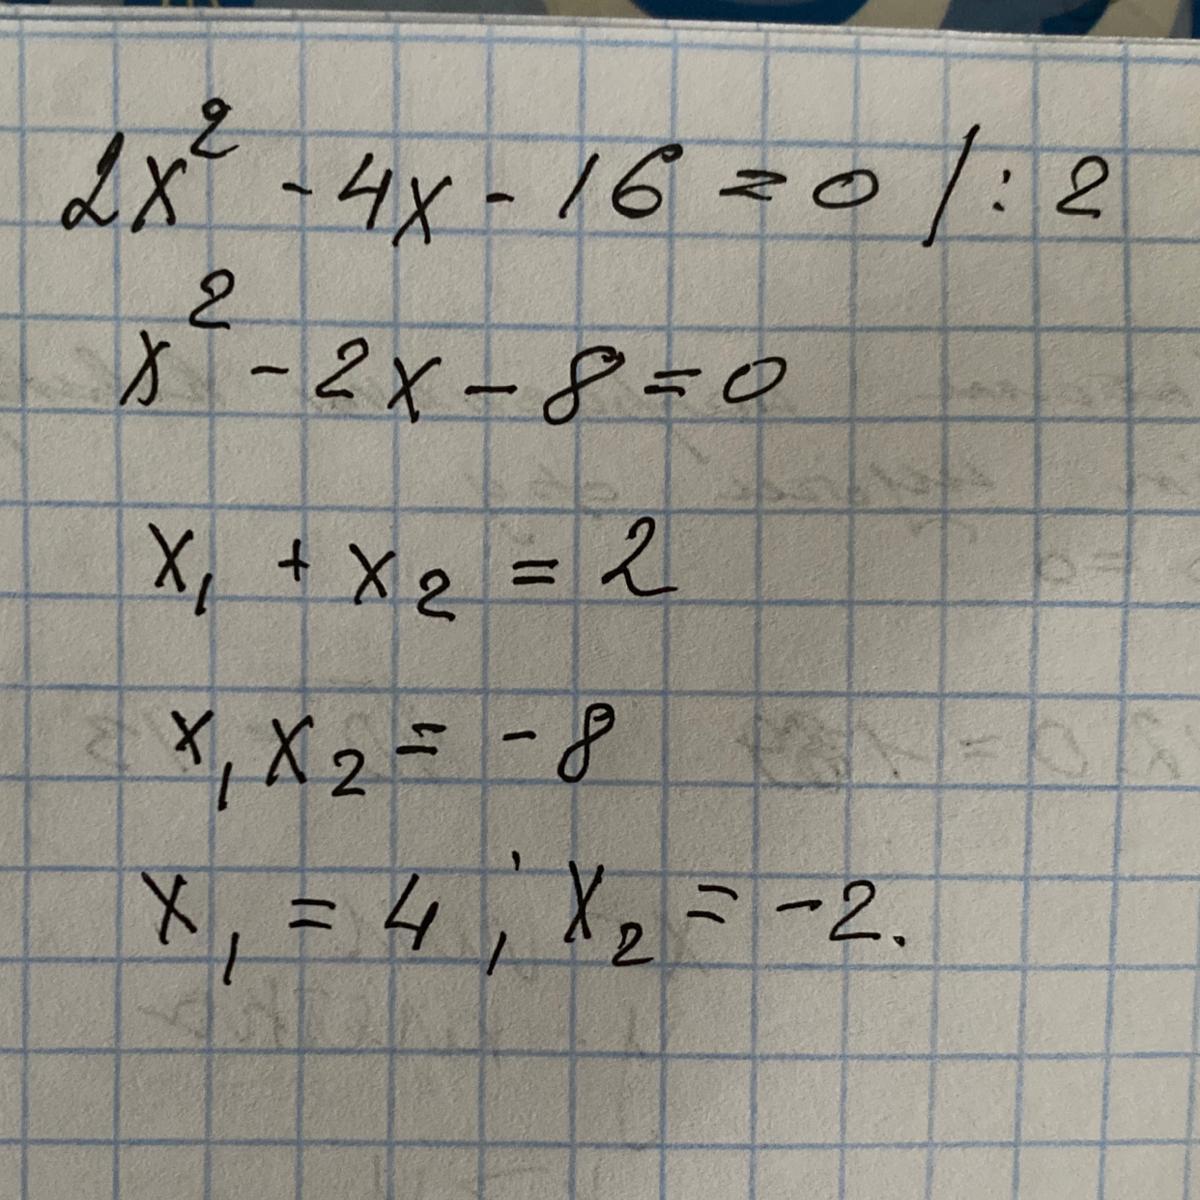 2x² - 4x - 16 = 0 / : 2
x² - 2x - 8 = 0
x₁ + x₂ = 2
x₁x₂ = - 8
x₁ = 4 ; x₂ = -2.